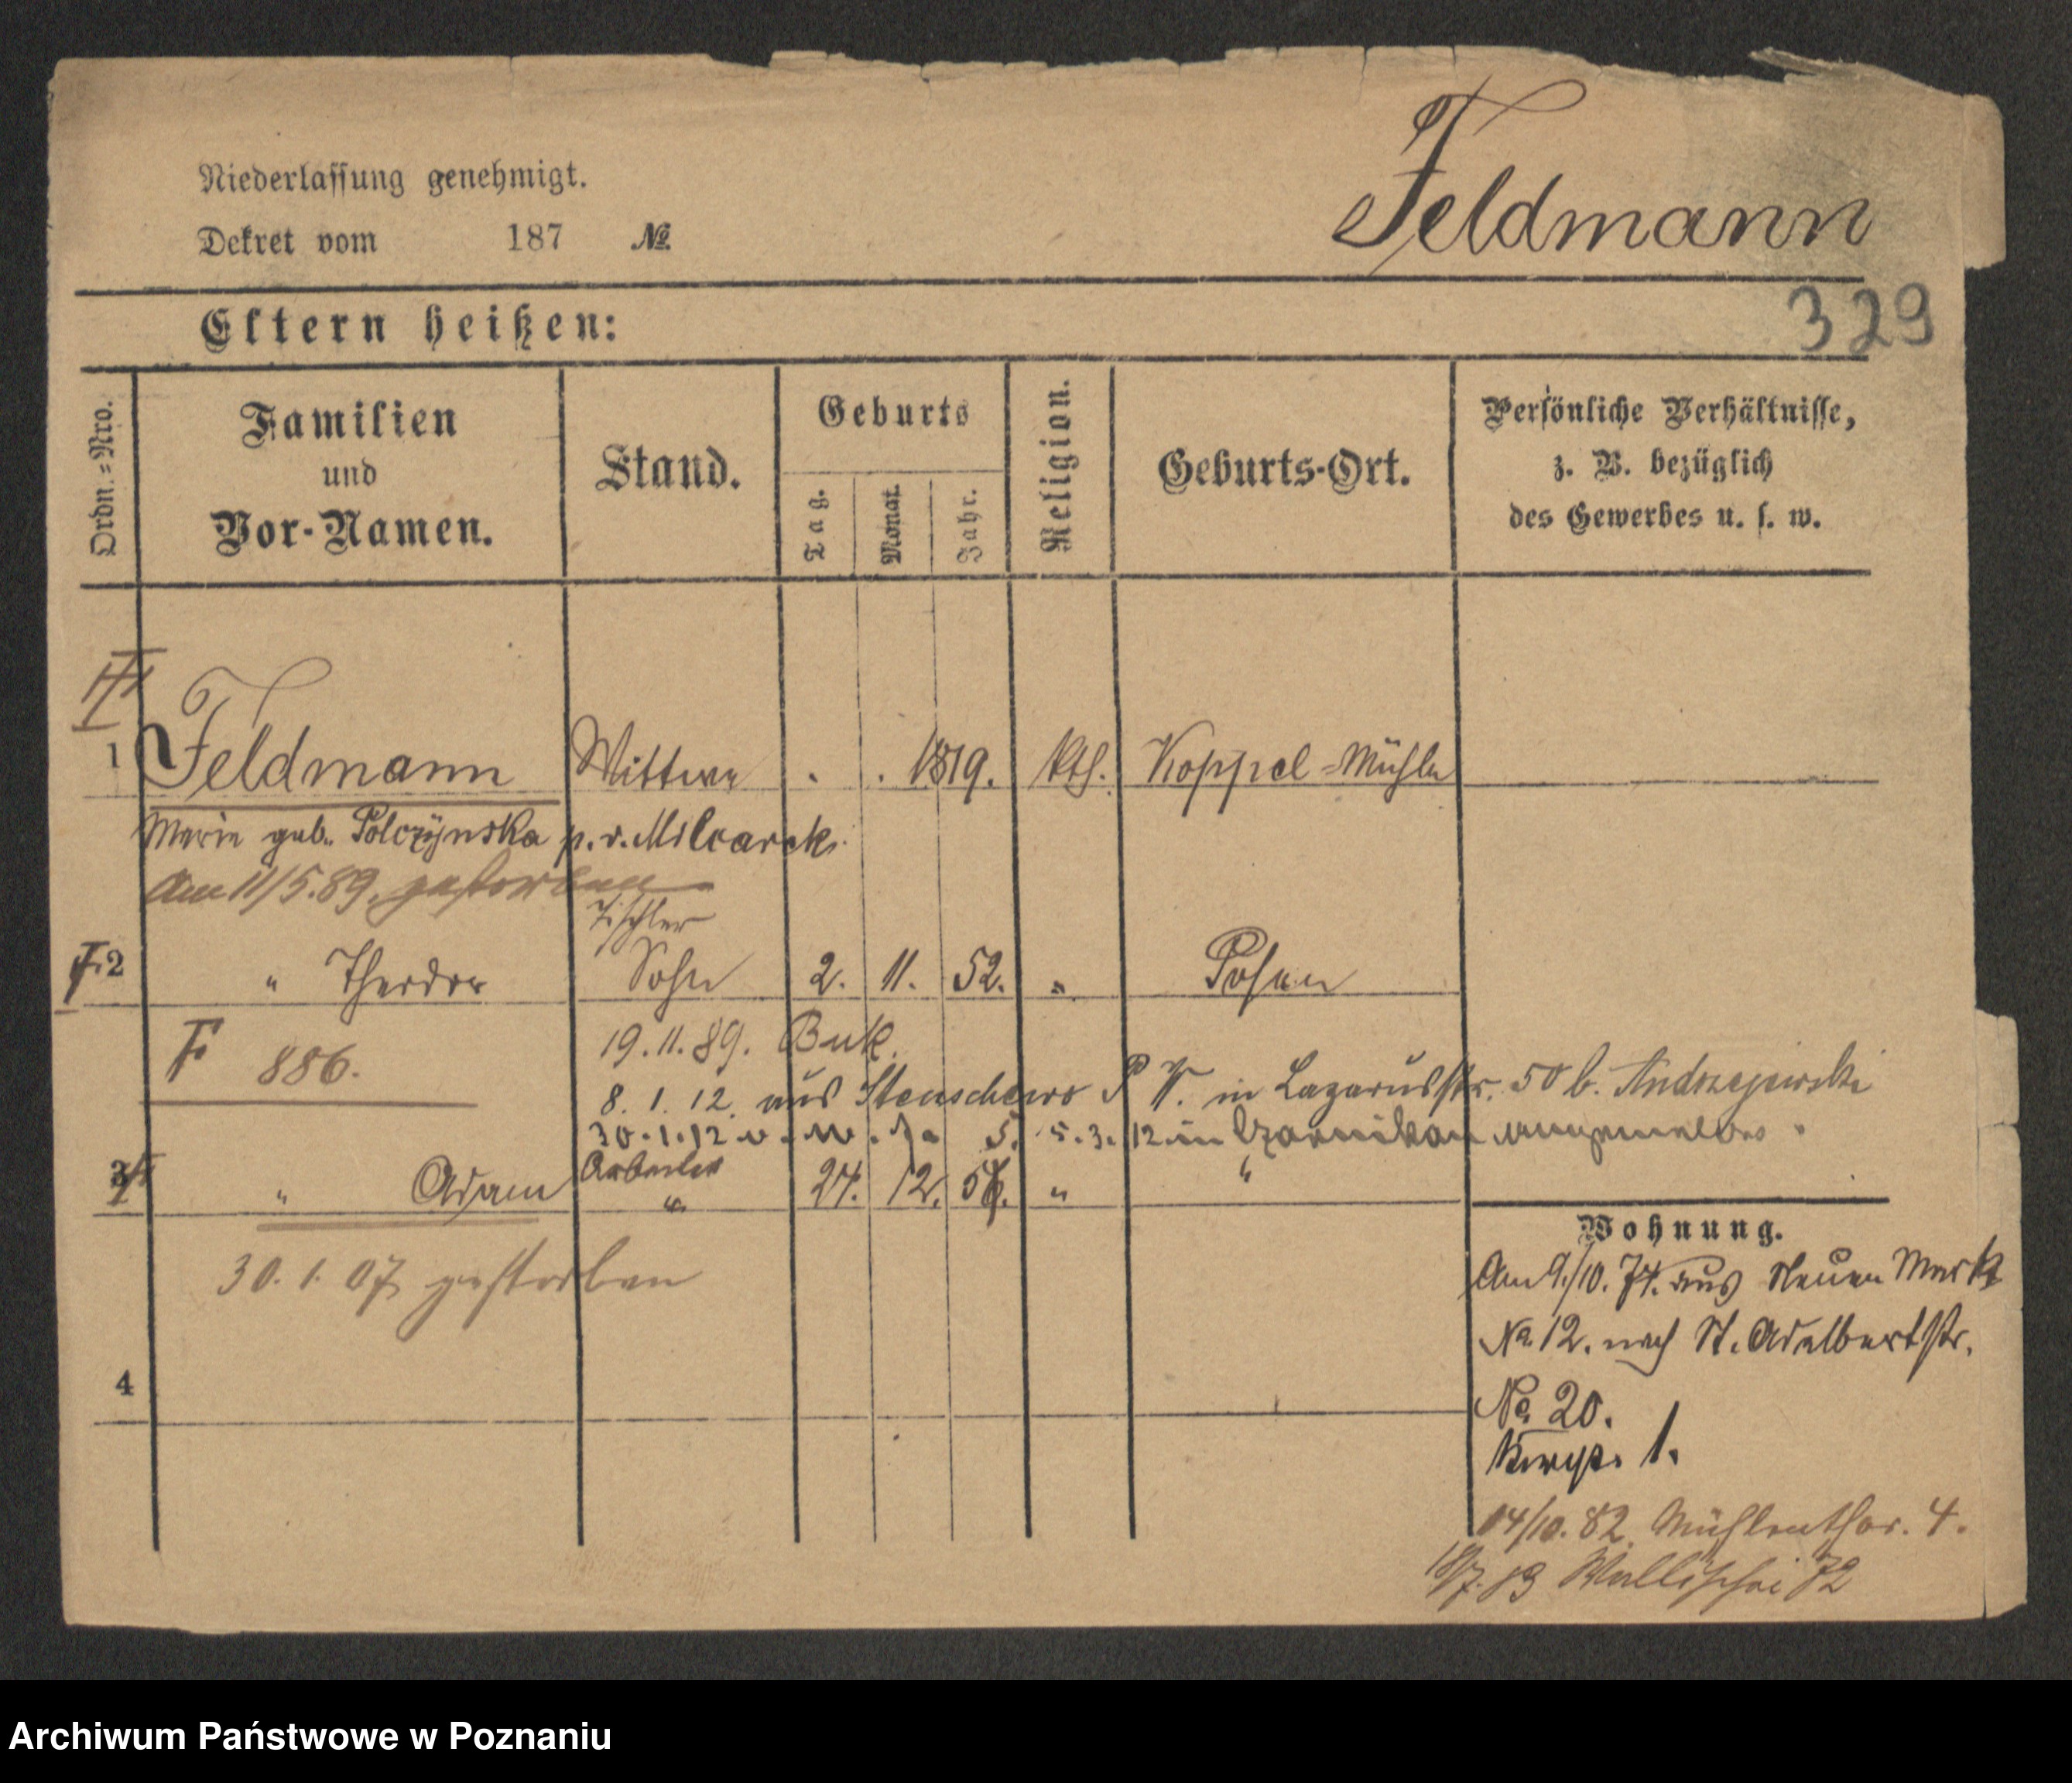 Feldmann
Niederlassung genehmigt.
Dekret vom 187 №
329
Eltern heißen:
Ordn.=Nro.
Familien
und
Vor-Namen.
Stand.
Geburts
Tag.
Monat.
Jahr.
Religion.
Geburts-Ort.
Persönliche Verhältnisse,
z. B. bezüglich
des Gewerbes u. s. w.
1 Feldmann Wittwe . . 1819. kth. Koppel=Mühle
Marie geb. Polczÿnska p. v. Milcarek
Am 11/5.89. gestorben
Tischler
2 " Theodor Sohn 2. 11. 52. " Posen
F 886.
19.11.89. Buk.
8. 1. 12. aus Stenschewo P. W. in Lazarusstr. 50 b. Andrzejewski
30.1.12 5. 5.3.12 in Czarnikau
Arbeiter
3 " Adam " 24. 12. " "
30. 1. 07 gestorben
4
Wohnung.
Am 9/10. 74. aus Neuen Markt
No. 12. nach St. Adalbertstr.
No. 20.
1.
04/10. 82. Mühlenthor. 4.
Wallischei 72
Archiwum Państwowe w Poznaniu